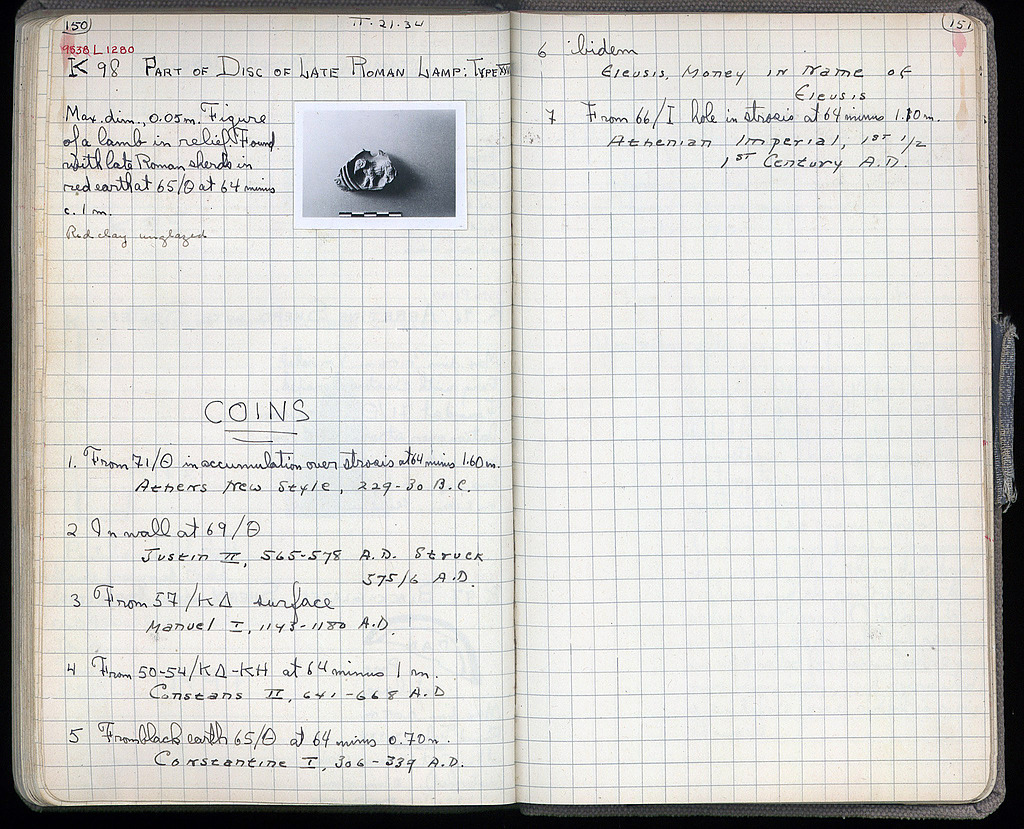 150
II·21·34
9538 L 1280
K 98 PART OF DISC OF LATE ROMAN LAMP: TYPE
Max. dim., 0.05 m. Figure
of a lamb in relief. Found
with late Roman sherds in
red earth at 65/Θ at 64 minus
c. 1 m.
Red clay unglazed
COINS
1. From 71/Θ in accumulation over stroses at 64 minus 1.60 m.
Athens New Style, 229-30 B.C.
2 In wall at 69/Θ
Justin II, 565-578 A.D. Struck
575/6 A.D.
3 From 57/ΚΔ surface
Manuel I, 1143-1180 A.D.
4 From 50-54/ΚΔ-ΚΗ at 64 minus 1 m.
Constans II, 641-668 A.D
5 From black earth 65/Θ at 64 minus 0.70 m.
Constantine I, 306-339 A.D.
151
6 ibidem
Eleusis, Money in Name of
Eleusis
7 From 66/I hole in strosis at 64 minus 1.10 m.
Athenian Imperial, 1ST 1/2
1ST Century A.D.